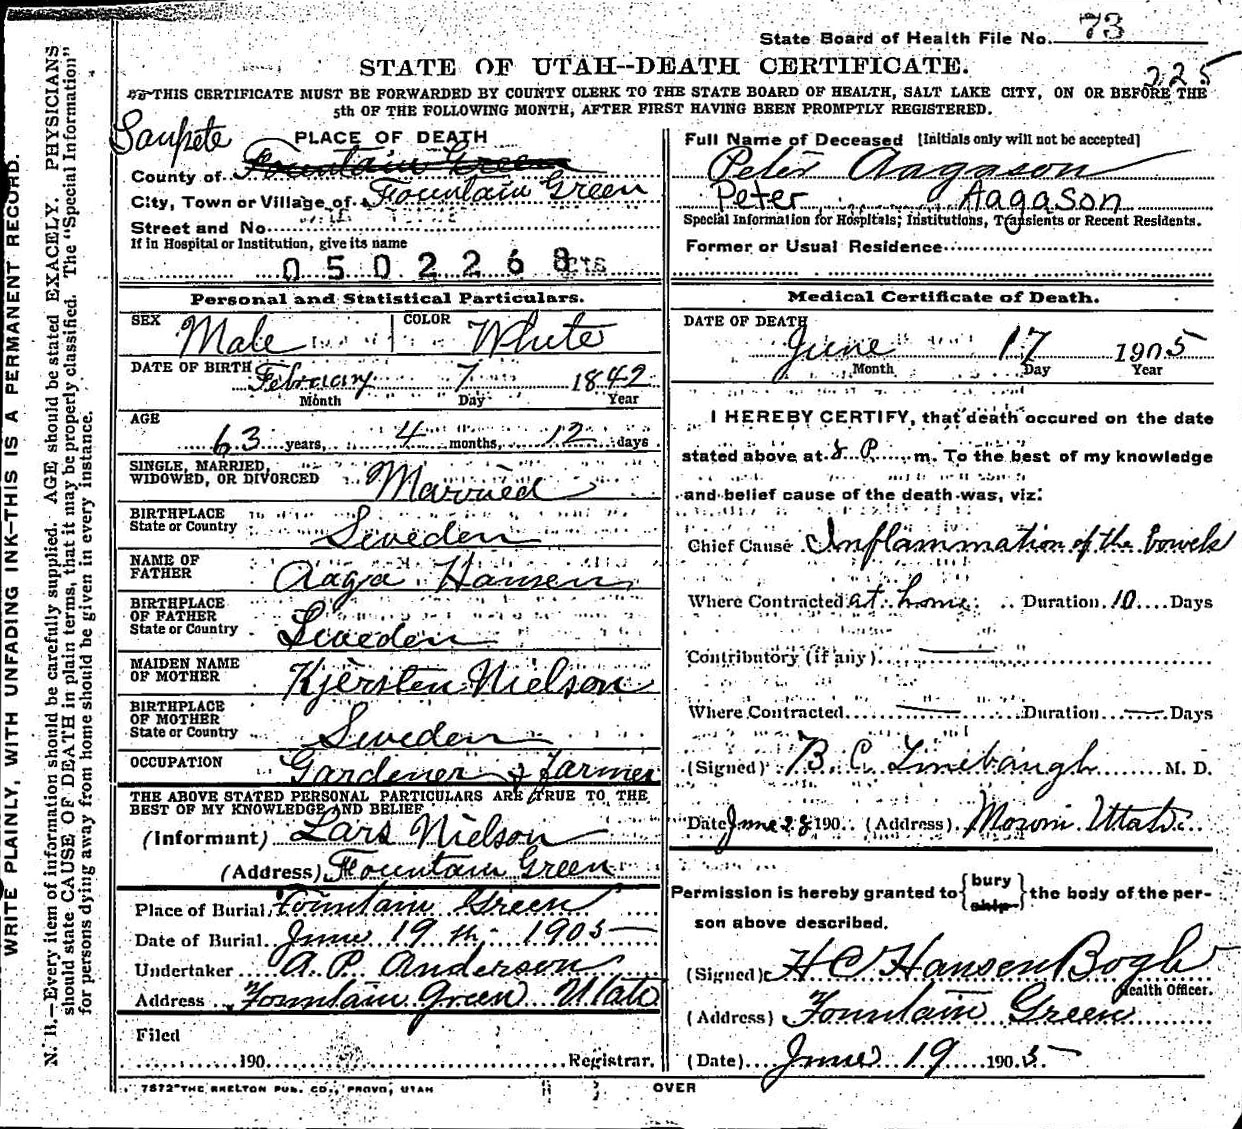 State Board of Health File No. 73
STATE OF UTAH--DEATH CERTIFICATE.
225
THIS CERTIFICATE MUST BE FORWARDED BY COUNTY CLERK TO THE STATE BOARD OF HEALTH, SALT LAKE CITY, ON OR BEFORE THE
5th OF THE FOLLOWING MONTH, AFTER FIRST HAVING BEEN PROMPTLY REGISTERED.
WRITE PLAINLY, WITH UNFADING INK—THIS IS A PERMANENT RECORD.
N. B.—Every item of information should be carefully supplied. AGE should be stated EXACELY. PHYSICIANS
should state CAUSE OF DEATH in plain terms, that it may be properly classified. The "Special Information"
for persons dying away from home should be given in every instance.
PLACE OF DEATH
Sanpete
County of Fountain Green
City, Town or Village of Fountain Green
Street and No.
If in Hospital or Institution, give its name
0502268
Personal and Statistical Particulars.
SEX Male COLOR White
DATE OF BIRTH February 7 1842
Month Day Year
AGE
63 years, 4 months, 12 days
SINGLE, MARRIED,
WIDOWED, OR DIVORCED Married
BIRTHPLACE
State or Country Sweden
NAME OF
FATHER Aaga Hansen
BIRTHPLACE
OF FATHER
State or Country Sweden
MAIDEN NAME
OF MOTHER Kjersten Nielson
BIRTHPLACE
OF MOTHER
State or Country Sweden
OCCUPATION Gardener & farmer
THE ABOVE STATED PERSONAL PARTICULARS ARE TRUE TO THE
BEST OF MY KNOWLEDGE AND BELIEF
(Informant) Lars Nielson
(Address) Fountain Green
Place of Burial Fountain Green
Date of Burial June 19th 1905
Undertaker A. P. Anderson
Address Fountain Green Utah
Filed
190 Registrar.
7872 THE SKELTON PUB. CO., PROVO, UTAH
OVER
Full Name of Deceased [Initials only will not be accepted]
Peter Aagason
Peter Aagason
Special Information for Hospitals, Institutions, Transients or Recent Residents.
Former or Usual Residence
Medical Certificate of Death.
DATE OF DEATH
June 17 1905
Month Day Year
I HEREBY CERTIFY, that death occured on the date
stated above at 8 P. m. To the best of my knowledge
and belief cause of the death was, viz:
Chief Cause Inflammation of the bowels
Where Contracted at home Duration 10 Days
Contributory (if any) —
Where Contracted — Duration — Days
(Signed) B. C. Linebaugh M. D.
Date June 28 190 (Address) Moroni Utah
Permission is hereby granted to { bury
ship } the body of the per-
son above described.
(Signed) H C Hansen Bogh
Health Officer.
(Address) Fountain Green
(Date) June 19 1905